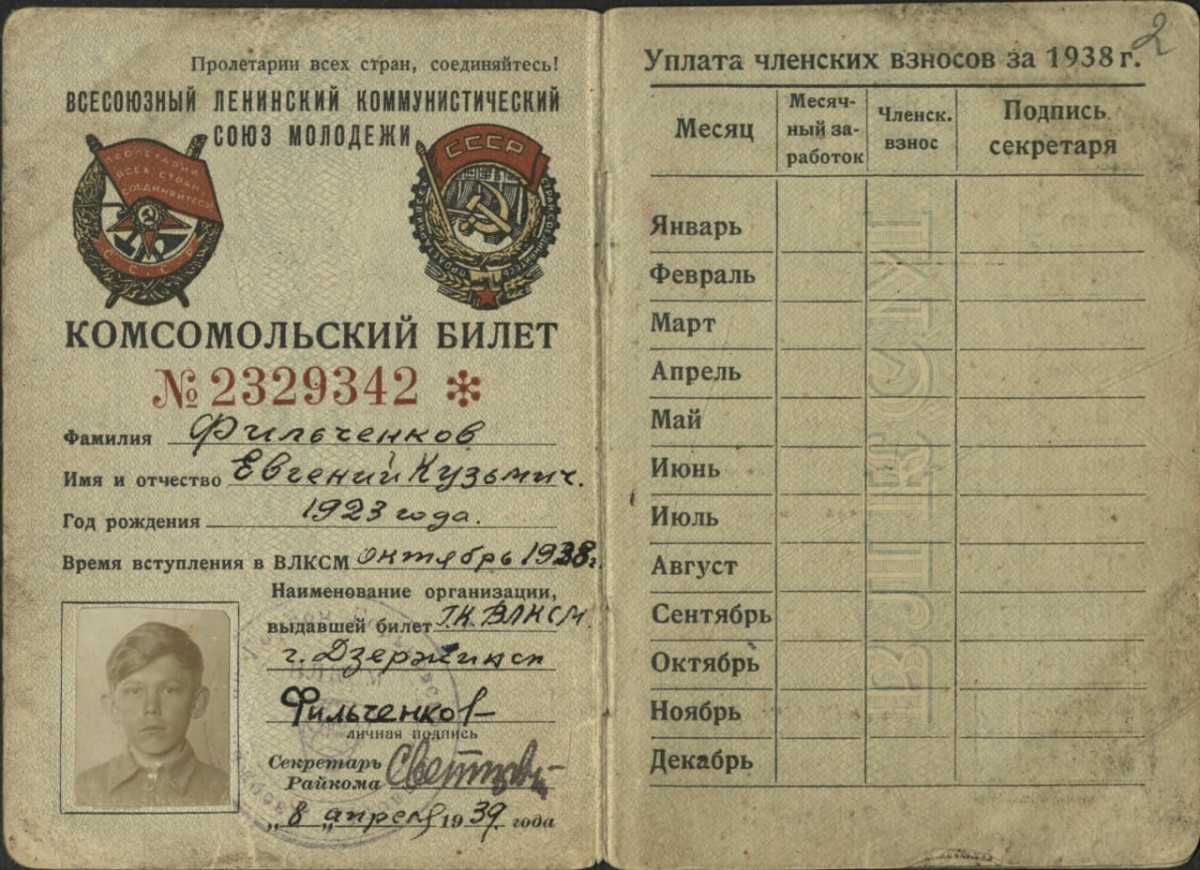 Пролетарии всех стран, соединяйтесь!
ВСЕСОЮЗНЫЙ ЛЕНИНСКИЙ КОММУНИСТИЧЕСКИЙ
СОЮЗ МОЛОДЕЖИ
ПРОЛЕТАРИИ
ВСЕХ СТРАН
СОЕДИНЯЙТЕСЬ!
СССР
СССР
КОМСОМОЛЬСКИЙ БИЛЕТ
№ 2329342 *
Фамилия Фильченков
Имя и отчество Евгений Кузьмич.
Год рождения 1923 года.
Время вступления в ВЛКСМ октябрь 1938г.
Наименование организации,
выдавшей билет Г.К. ВЛКСМ.
г. Дзержинск
Фильченков
личная подпись
Секретарь
Райкома
"8" апреля 1939 года
2
Уплата членских взносов за 1938 г.
Месяц Месяч-ный за-работок Членск. взнос Подпись секретаря
Январь
Февраль
Март
Апрель
Май
Июнь
Июль
Август
Сентябрь
Октябрь
Ноябрь
Декабрь